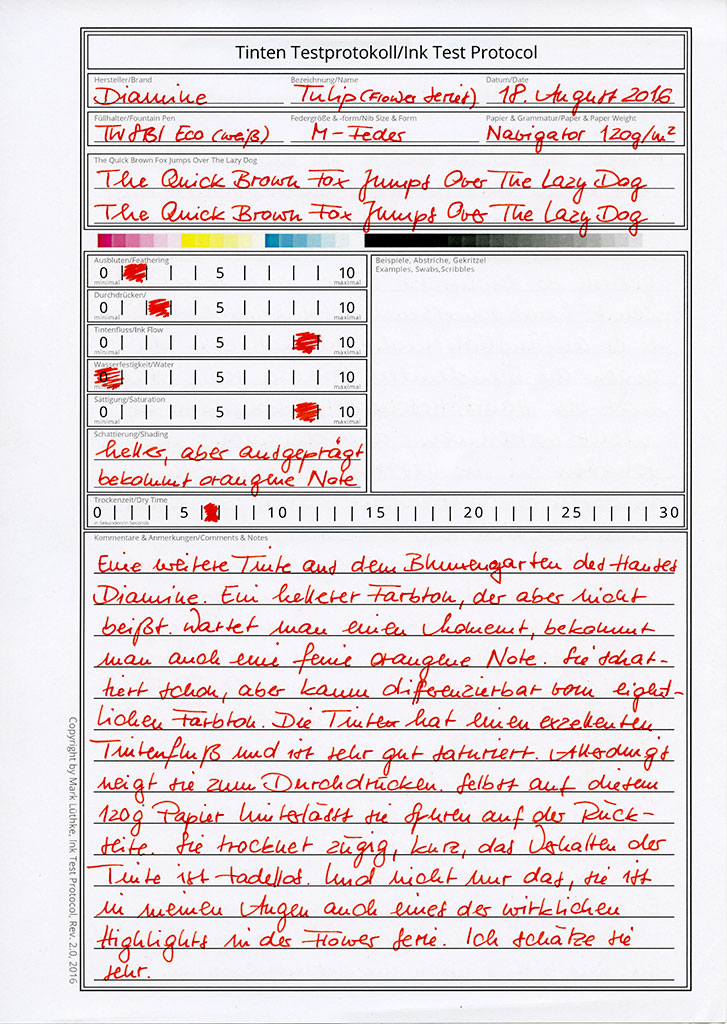 Tinten Testprotokoll/Ink Test Protocol
Hersteller/Brand Bezeichnung/Name Datum/Date
Diamine Tulip (Flower Series) 18. August 2016
Füllhalter/Fountain Pen Federgröße & -form/Nib Size & Form Papier & Grammatur/Paper & Paper Weight
TWSBI Eco (weiß) M-Feder Navigator 120g/m²
The Quick Brown Fox Jumps Over The Lazy Dog
The Quick Brown Fox Jumps Over The Lazy Dog
The Quick Brown Fox Jumps Over The Lazy Dog
Ausbluten/Feathering
0 5 10
minimal maximal
Durchdrücken/
0 5 10
minimal maximal
Tintenfluss/Ink Flow
0 5 10
minimal maximal
Wasserfestigkeit/Water
0 5 10
minimal maximal
Sättigung/Saturation
0 5 10
minimal maximal
Schattierung/Shading
heller, aber ausgeprägt
bekommt orangene Note
Beispiele, Abstriche, Gekritzel
Examples, Swabs,Scribbles
Trockenzeit/Dry Time
0 5 10 15 20 25 30
in Sekunden/in Seconds
Kommentare & Anmerkungen/Comments & Notes
Eine weitere Tinte aus dem Blumengarten des Hauses
Diamine. Ein hellerer Farbton, der aber nicht
beißt. Wartet man einen Moment, bekommt
man auch eine feine orangene Note. Sie schat-
tiert schon, aber kaum differenzierbar vom eigent-
lichen Farbton. Die Tinten hat einen exzellenten
Tintenfluß und ist sehr gut saturiert. Allerdings
neigt sie zum Durchdrücken. Selbst auf diesem
120g Papier hinterlässt sie Spuren auf der Rück-
seite. Sie trocknet zügig, kurz, das Verhalten der
Tinte ist tadellos. Und nicht nur das, sie ist
in meinen Augen auch eines der wirklichen
Highlights in der Flower Serie. Ich schätze sie
sehr.
Copyright by Mark Lüthke, Ink Test Protocol, Rev. 2.0, 2016